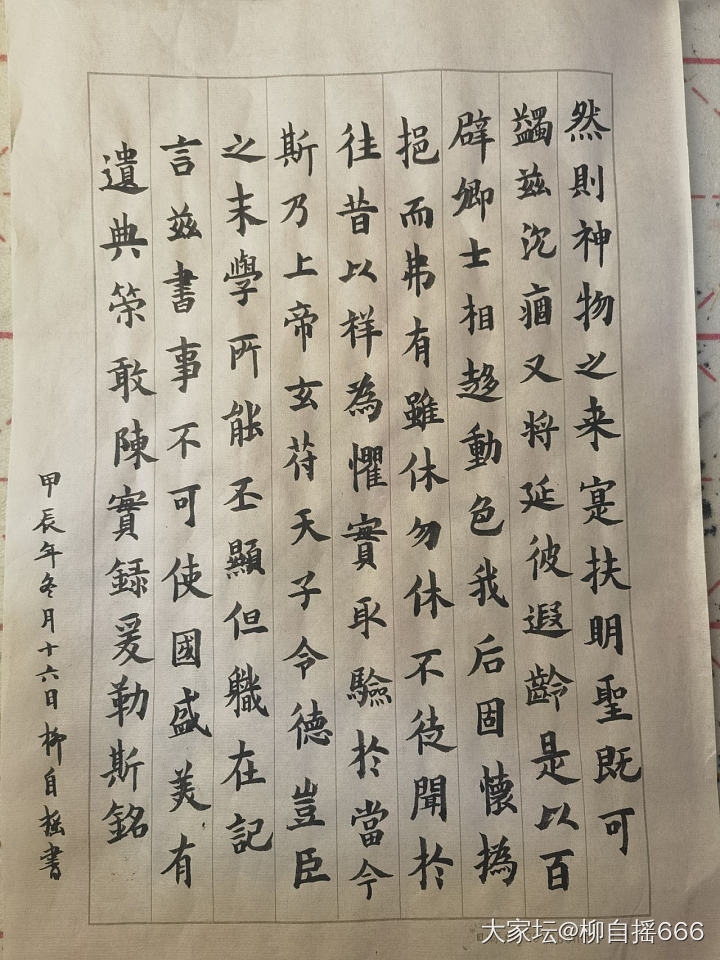 然則神物之来寔扶明聖既可
蠲兹沉痼又将延彼遐齡是以百
辟卿士相趍動色我后固懷撝
挹而弗有雖休勿休不徒聞於
往昔以祥為懼實取驗於當今
斯乃上帝玄苻天子令德豈臣
之末學所能丕顯但職在記
言兹書事不可使國盛美有
遺典策敢陳實録爰勒斯銘
甲辰年冬月十六日柳自摇書
大家坛@柳自摇666